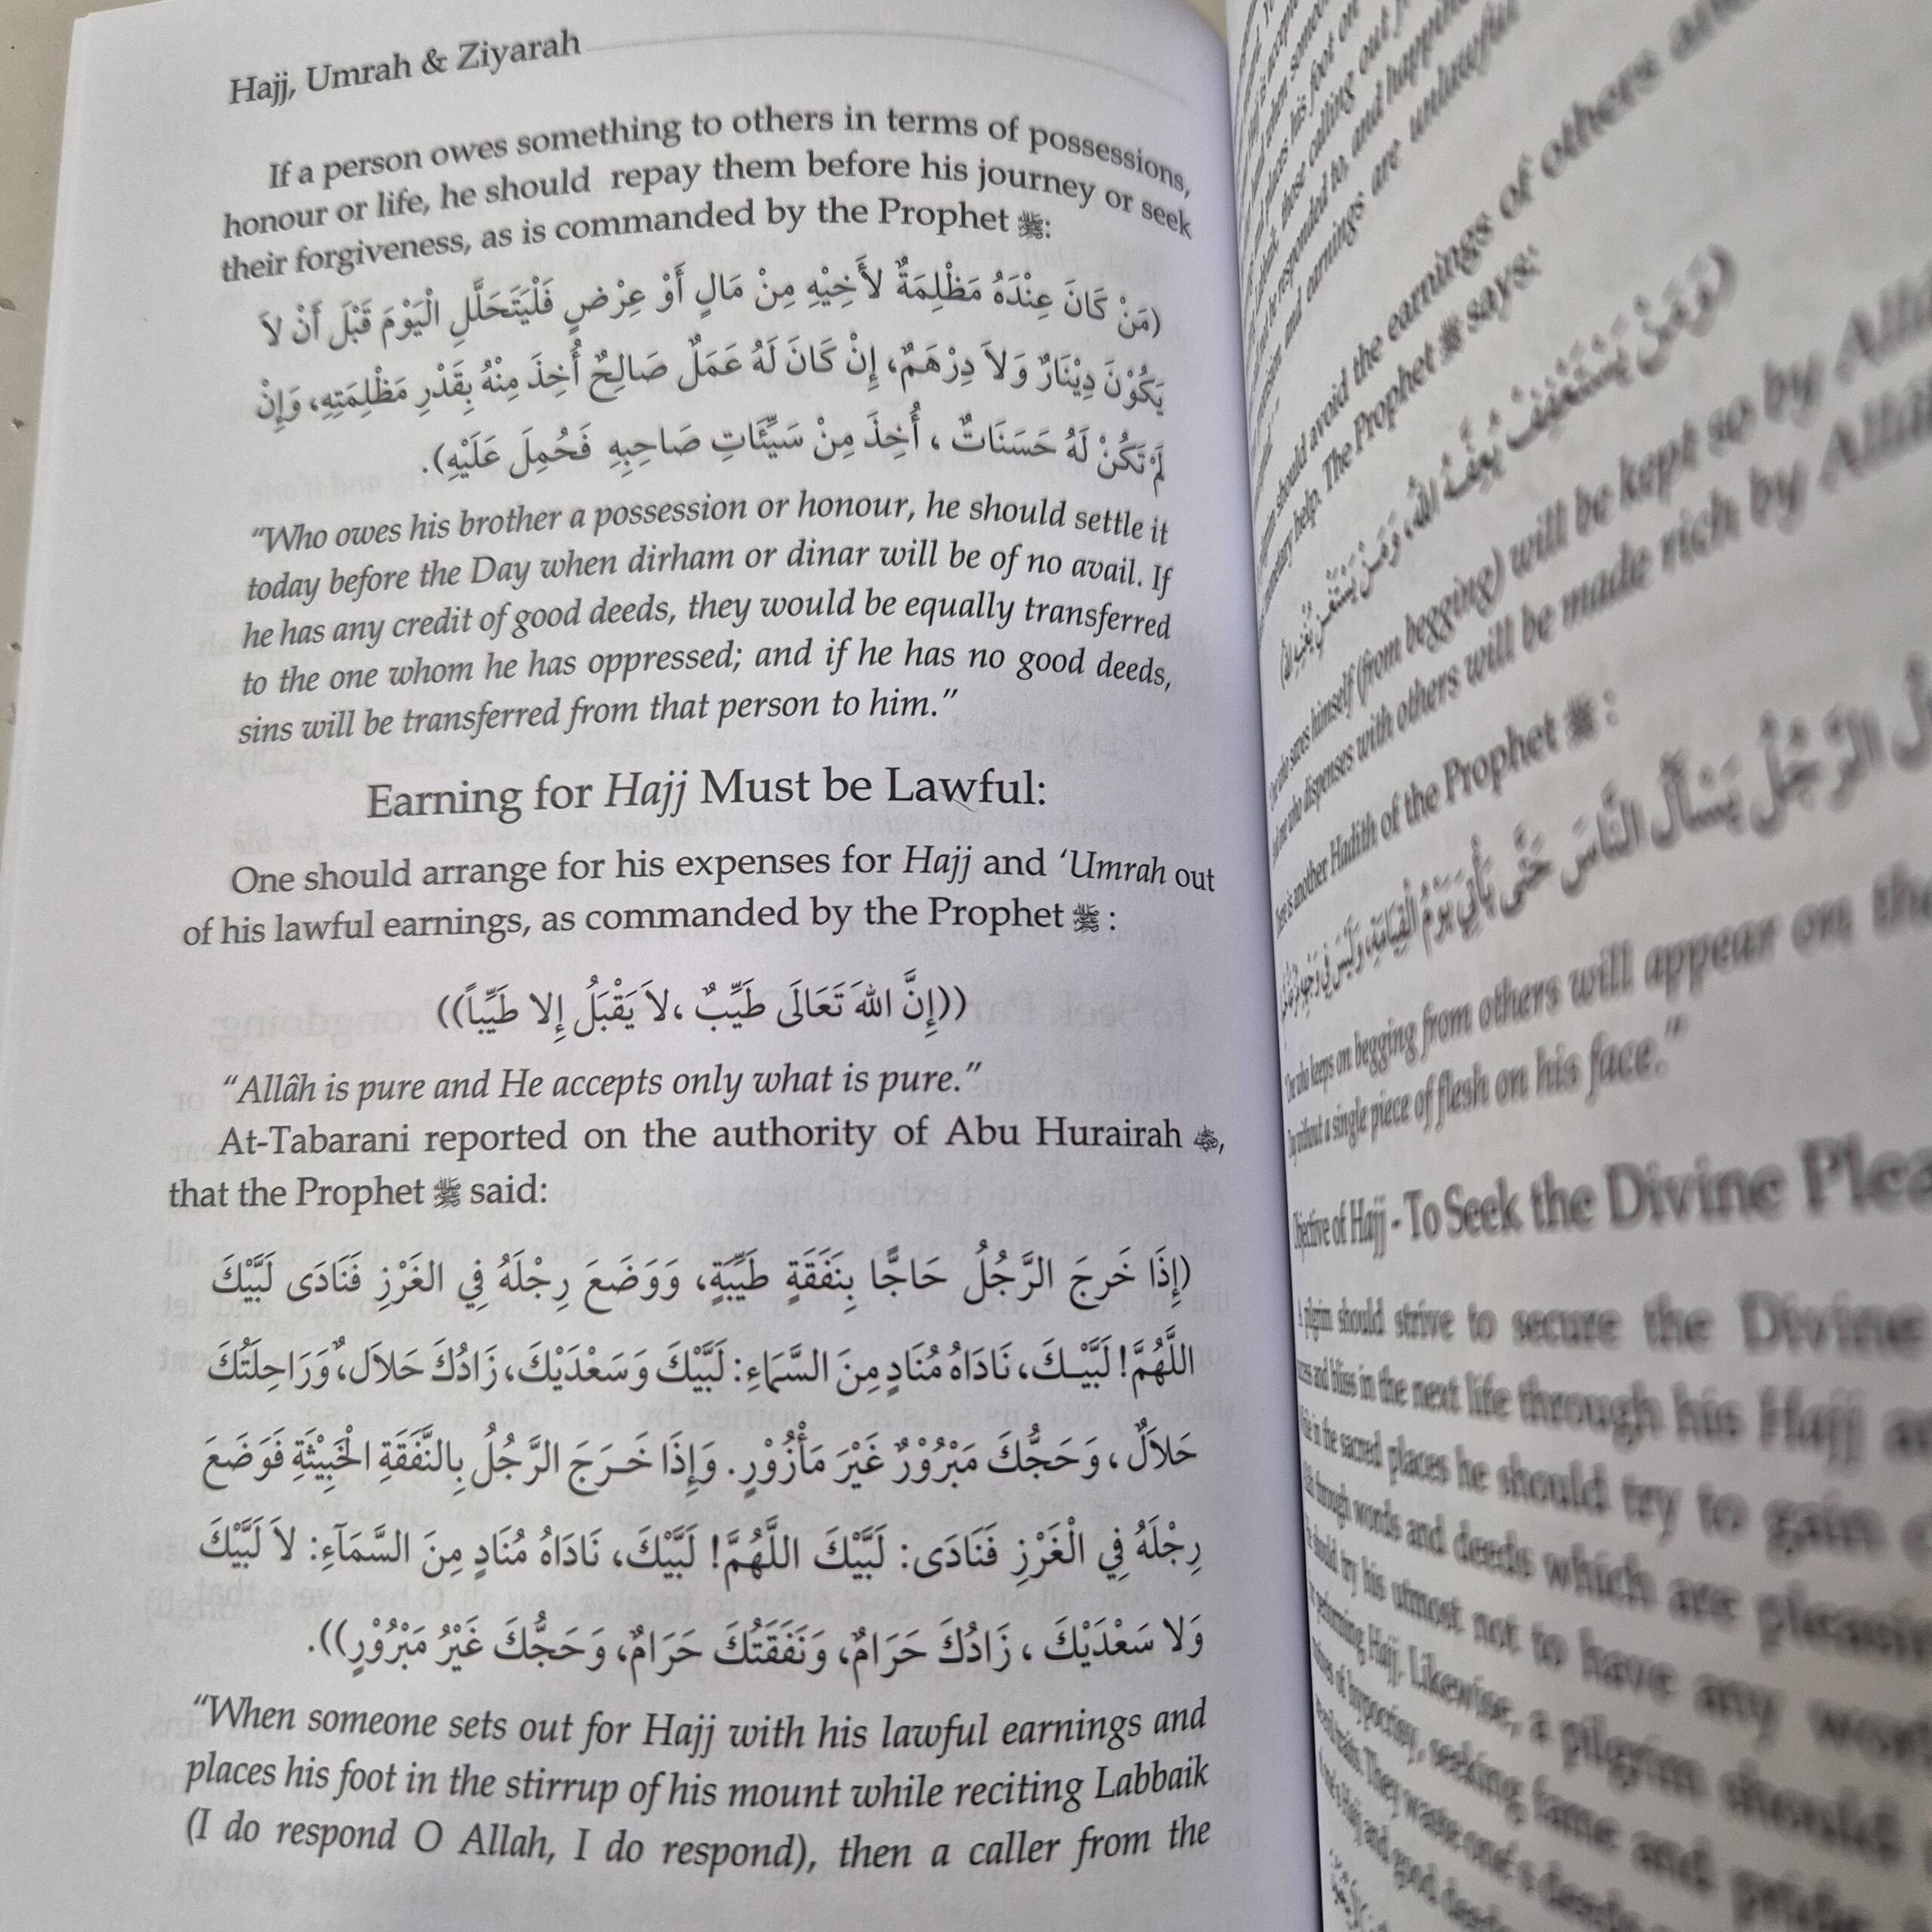 Hajj, Umrah & Ziyarah
If a person owes something to others in terms of possessions,
honour or life, he should repay them before his journey or seek
their forgiveness, as is commanded by the Prophet ﷺ:
(مَنْ كَانَ عِنْدَهُ مَظْلِمَةٌ لأَخِيْهِ مِنْ مَالٍ أَوْ عِرْضٍ فَلْيَتَحَلَّلِ الْيَوْمَ قَبْلَ أَنْ لاَ
يَكُوْنَ دِيْنَارٌ وَلاَ دِرْهَمٌ، إِنْ كَانَ لَهُ عَمَلٌ صَالِحٌ أُخِذَ مِنْهُ بِقَدْرِ مَظْلِمَتِهِ، وَإِنْ
لَمْ تَكُنْ لَهُ حَسَنَاتٌ ، أُخِذَ مِنْ سَيِّئَاتِ صَاحِبِهِ فَحُمِلَ عَلَيْهِ).
“Who owes his brother a possession or honour, he should settle it
today before the Day when dirham or dinar will be of no avail. If
he has any credit of good deeds, they would be equally transferred
to the one whom he has oppressed; and if he has no good deeds,
sins will be transferred from that person to him.”
Earning for Hajj Must be Lawful:
One should arrange for his expenses for Hajj and ‘Umrah out
of his lawful earnings, as commanded by the Prophet ﷺ :
((إِنَّ اللهَ تَعَالَى طَيِّبٌ ،لاَ يَقْبَلُ إِلا طَيِّباً))
“Allâh is pure and He accepts only what is pure.”
At-Tabarani reported on the authority of Abu Hurairah ,
that the Prophet ﷺ said:
(إِذَا خَرجَ الرَّجُلُ حَاجًّا بِنَفَقَةٍ طَيِّبَةٍ، وَوَضَعَ رِجْلَهُ فِي الغَرْزِ فَنَادَى لَبَّيْكَ
اللَّهُمَّ! لَبَّيْكَ، نَادَاهُ مُنَادٍ مِنَ السَّمَاءِ: لَبَّيْكَ وَسَعْدَيْكَ، زَادُكَ حَلاَل،ٌ وَرَاحِلَتُكَ
حَلاَلٌ، وَحَجُّكَ مَبْرُوْرٌ غَيْرَ مَأْزُوْرٍ. وَإِذَا خَرَجَ الرَّجُلُ بِالنَّفَقَةِ الْخَبِيْثَةِ فَوَضَعَ
رِجْلَهُ فِي الْغَرْزِ فَنَادَى: لَبَّيْكَ اللَّهُمَّ! لَبَّيْكَ، نَادَاهُ مُنَادٍ مِنَ السَّمَآءِ: لاَ لَبَّيْكَ
وَلا سَعْدَيْكَ ، زَادُكَ حَرَامٌ، وَنَفَقَتُكَ حَرَامٌ، وَحَجُّكَ غَيْرُ مَبْرُوْرٍ)).
“When someone sets out for Hajj with his lawful earnings and
places his foot in the stirrup of his mount while reciting Labbaik
(I do respond O Allah, I do respond), then a caller from the
and earnings are unlawful
should avoid the earnings of others and
help. The Prophet ﷺ says:
(وَمَنْ يَسْتَعْفِفْ يُعِفَّهُ اللهُ، وَمَنْ يَسْتَغْنِ يُغْنِهِ اللهُ)
himself (from begging) will be kept so by Alla
who dispenses with others will be made rich by Alla
another Hadith of the Prophet ﷺ :
الرَّجُلُ يَسْأَلُ النَّاسَ حَتَّى يَأْتِيَ يَوْمَ الْقِيَامَةِ
keeps on begging from others will appear on the
without a single piece of flesh on his face.”
Objective of Hajj - To Seek the Divine Plea
A pilgrim should strive to secure the Divine
and bliss in the next life through his Hajj a
in the sacred places he should try to gain
through words and deeds which are pleasin
his utmost not to have any wor
performing Hajj. Likewise, a pilgrim should
of hypocrisy, seeking fame and pride
They waste one's deeds